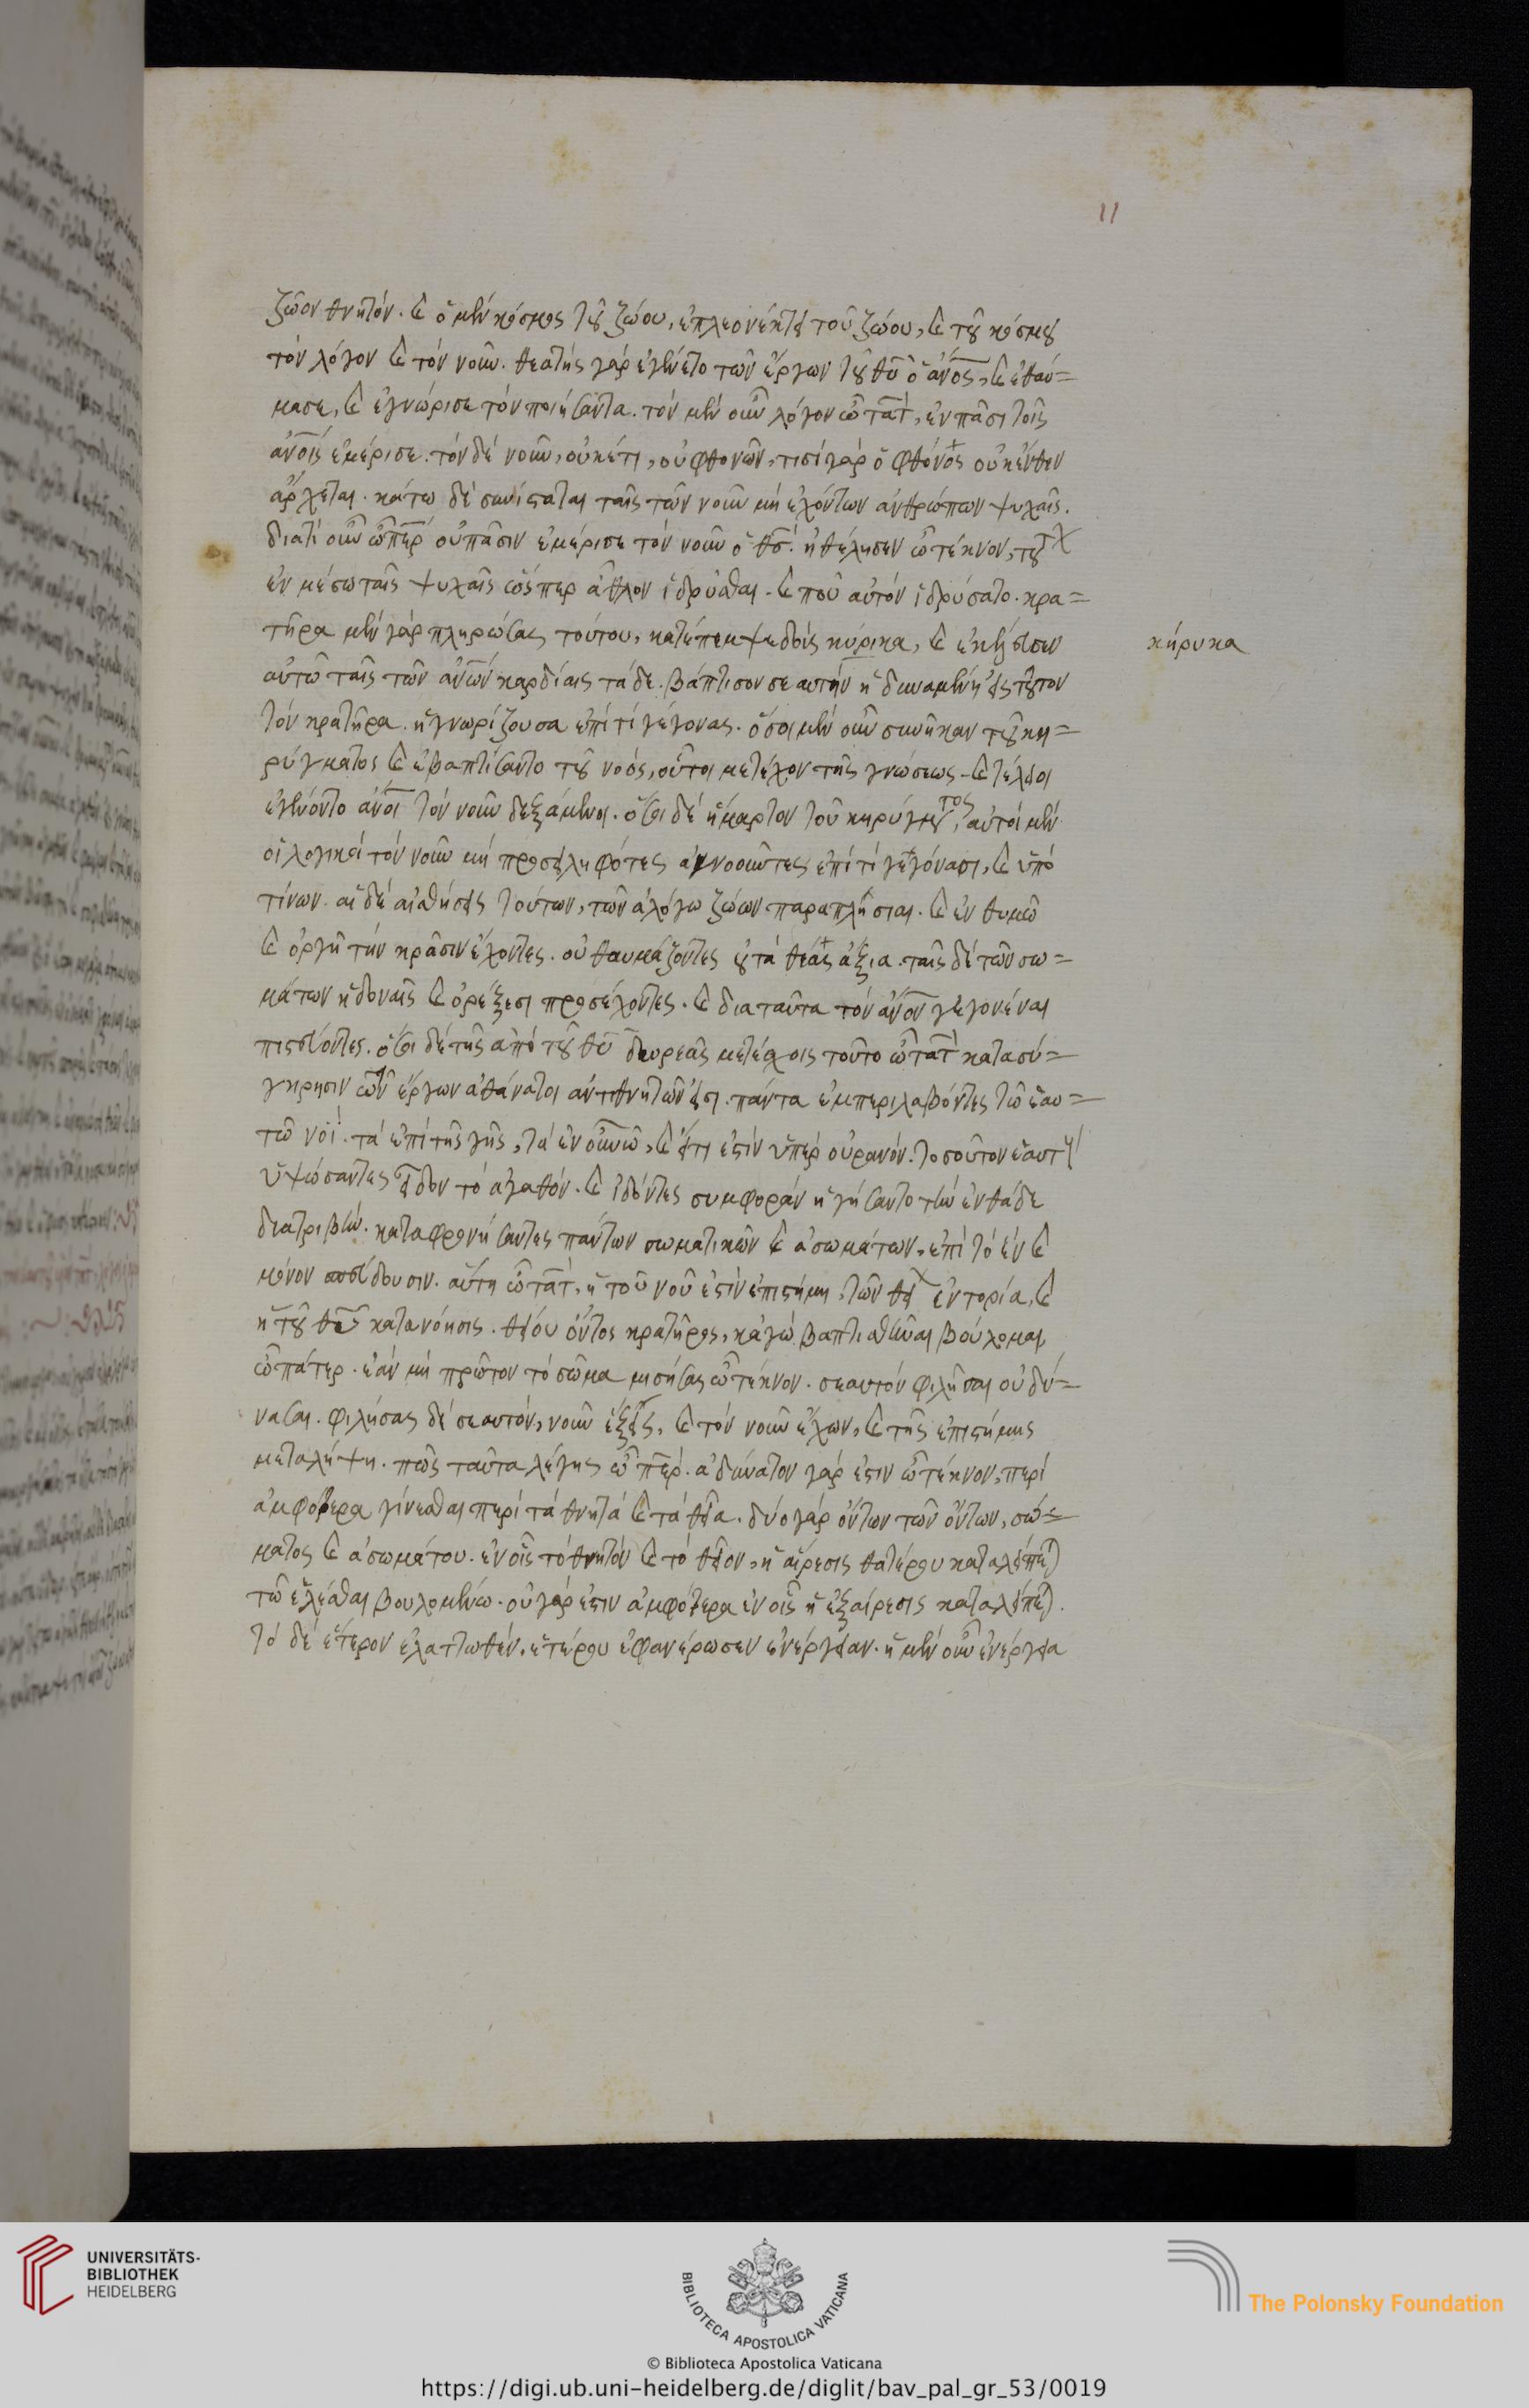 11
ζῶον θνητόν. καὶ ὁ μὲν κόσμος τοῦ ζώου, ἐπλεονέκτει τοῦ ζώου, καὶ τοῦ κόσμου
τὸν λόγον καὶ τὸν νοῦν. θεατὴς γὰρ ἐγένετο τῶν ἔργων τοῦ θυ ὁ ἄνος, καὶ ἐθαύ=
μασε, καὶ ἐγνώρισε τὸν ποιήσαντα. τὸν μὲν οὖν λόγον ὦ τὰτ, ἐν πᾶσι τοῖς
ἀνοις ἐμέρισε. τὸν δὲ νοῦν, οὐκέτι, οὐ φθονῶν, τισὶ γὰρ ὁ φθόνος οὐκ ἔνθεν
ἄρχεται. κάτω δὲ συνίσταται ταῖς τῶν νοῦν μὴ ἐχόντων ἀνθρώπων ψυχαῖς.
διατί οὖν ὦ περ οὐ πᾶσιν ἐμέρισε τὸν νοῦν ὁ θς. ἠθέλησεν ὦ τέκνον, τοῦτ
ἐν μέσω ταῖς ψυχαῖς ὥσπερ ἆθλον ἱδρύσθαι. καὶ ποῦ αὐτὸν ἱδρύσατο. κρα=
τῆρα μέν γὰρ πληρώσας τούτου, κατέπεμψε δοὺς κύρικα, καὶ ἐκέλευσεν
κήρυκα
αὐτῶ ταῖς τῶν ἀνων καρδίαις τάδε. βάπτισον σεαυτὴν ἡ δυναμένη εἰς τοῦτον
τὸν κρατῆρα. ἡ γνωρίζουσα ἐπὶ τί γέγονας. ὅσοι μὲν οὖν συνῆκαν τοῦ κη=
ρύγματος καὶ ἐβαπτίσαντο τοῦ νοός, οὗτοι μετέχον τῆς γνώσεως. καὶ τέλειοι
ἐγένοντο ἄνοι τὸν νοῦν δεξάμενοι. ὅσοι δὲ ἥμαρτον τοῦ κηρύγματος, αὐτοὶ μὲν
οἱ λογικοὶ τὸν νοῦν μὴ προσειληφότες ἀγνοοῦντες ἐπὶ τί γεγόνασι, καὶ ὑπὸ
τίνων. αἱ δὲ αἰσθήσεις τούτων, τῶν ἀλόγω ζώων παραπλήσιαι. καὶ ἐν θυμῶ
καὶ ὀργῆ τὴν κρᾶσιν ἔχοντες. οὐ θαυμάζοντες οὐ τὰ θέας ἄξια. ταῖς δὲ τῶν σω=
μάτων ἡδοναῖς καὶ ὀρέξεσι προσέχοντες. καὶ διαταῦτα τὸν ἄνον γεγονέναι
πιστεύοντες. ὅσοι δὲ τῆς ἀπὸ τοῦ θυ δωρεᾶς μετέχοις τοῦτο ὦ τὰτ κατασύ=
γκρησιν τῶν ἔργων ἀθάνατοι ἀντιθνητῶν εἰσι. πάντα ἐμπεριλαβόντες τῶ ἑαυ=
τῶ νοΐ. τὰ ἐπὶ τῆς γῆς, τὰ ἐν οὐνῶ, καὶ εἴτι ἐστὶν ὑπὲρ οὐρανόν. τοσοῦτον ἑαυτ
ὑψώσαντες εἶδον τὸ ἀγαθόν. καὶ ἰδόντες συμφορὰν ἡγήσαντο τὴν ἐνθάδε
διατριβήν. καταφρονήσαντες πάντων σωματικῶν καὶ ἀσωμάτων, ἐπὶ τὸ ἓν καὶ
μόνον σπεύδουσιν. αὕτη ὦ τὰτ, ἡ τοῦ νοῦ ἐστὶν ἐπιστήμη, τῶν θεί ἐντορία, καὶ
ἡ τοῦ θυ κατανόησις. θείου ὄντος κρατῆρος, κἀγὼ βαπτισθῆναι βούλομαι,
ὦ πάτερ. ἐὰν μὴ πρῶτον τὸ σῶμα μισήσας ὦ τέκνον. σεαυτὸν φιλῆσαι οὐ δύ=
νασαι. φιλήσας δὲ σεαυτόν, νοῦν ἕξεις, καὶ τὸν νοῦν ἔχων, καὶ τῆς ἐπιστήμης
μεταλήψη. πῶς ταῦτα λέγης ὦ περ. ἀδύνατον γὰρ ἐστιν ὦ τέκνον, περὶ
ἀμφότερα γίνεσθαι περὶ τὰ θνητὰ καὶ τὰ θεῖα. δύο γὰρ ὄντων τῶν ὄντων, σώ=
ματος καὶ ἀσωμάτου. ἐν οἷς τὸ θνητὸν καὶ τὸ θεῖον, ἡ αἵρεσις θατέρου καταλείπε
τῶ ἑλέσθαι βουλομένω. οὐ γὰρ ἐστιν ἀμφότερα ἐν οἷς ἡ ἐξαίρεσις καταλείπε.
τὸ δὲ ἕτερον ἐλαττωθέν. ἑτέρου ἐφανέρωσεν ἐνέργειαν. ἡ μὲν οὖν ἐνέργεια
UNIVERSITÄTS-
BIBLIOTHEK
HEIDELBERG
BIBLIOTECA APOSTOLICA VATICANA
© Biblioteca Apostolica Vaticana
The Polonsky Foundation
https://digi.ub.uni-heidelberg.de/diglit/bav_pal_gr_53/0019